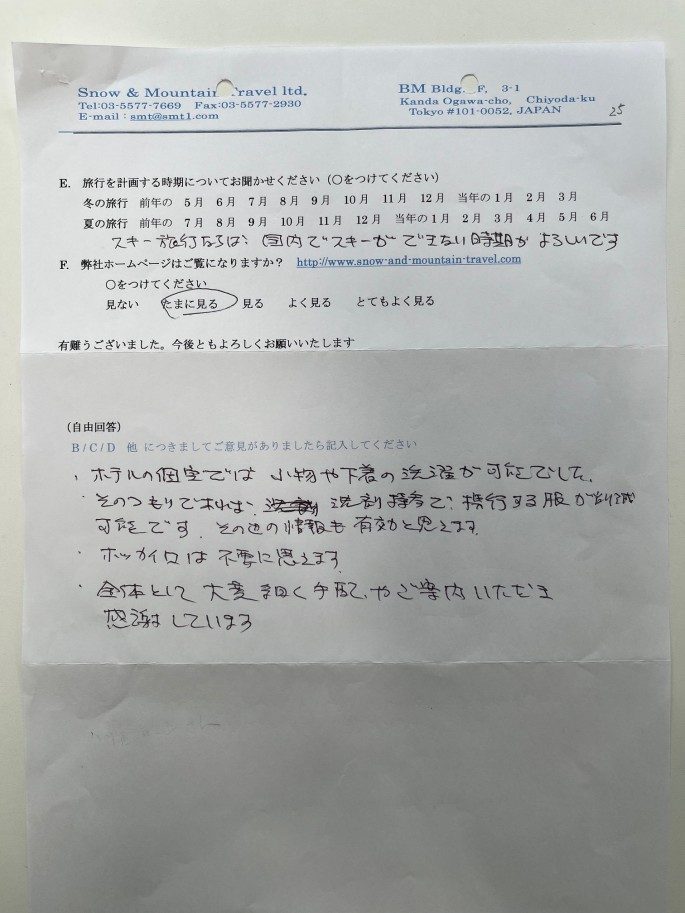 Snow & Mountain Travel ltd.
Tel:03-5577-7669 Fax:03-5577-2930
E-mail : smt@smt1.com
BM Bldg. F, 3-1
Kanda Ogawa-cho, Chiyoda-ku
Tokyo #101-0052, JAPAN
25
E. 旅行を計画する時期についてお聞かせください(○をつけてください)
冬の旅行 前年の 5月 6月 7月 8月 9月 10月 11月 12月 当年の1月 2月 3月
夏の旅行 前年の 7月 8月 9月 10月 11月 12月 当年の1月 2月 3月 4月 5月 6月
スキー旅行ならば、国内でスキーができない時期がよろしいです
F. 弊社ホームページはご覧になりますか? http://www.snow-and-mountain-travel.com
○をつけてください
見ない たまに見る 見る よく見る とてもよく見る
有難うございました。今後ともよろしくお願いいたします
(自由回答)
B/C/D 他 につきましてご意見がありましたら記入してください
・ホテルの個室では 小物や下着の洗濯が可能でした。
・そのつもりであれば、洗剤持参で、携行する服が削減
可能です。その辺の情報も有効と思えます。
・ホッカイロは不要に思えます
・全体として大変細く手配、やご案内いただき
感謝しています